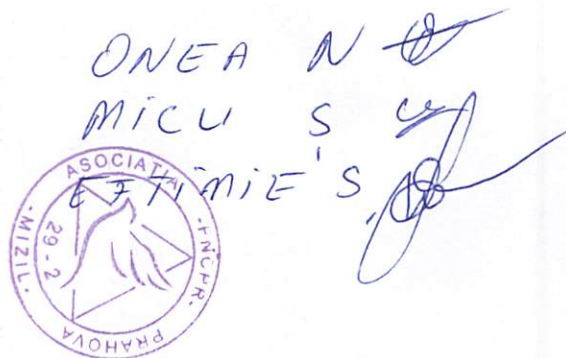 ONEA N
MICU S
EFTIMIE S.
ASOCIATIA · FNCPR ·
PRAHOVA
· MIZIL ·
29-2